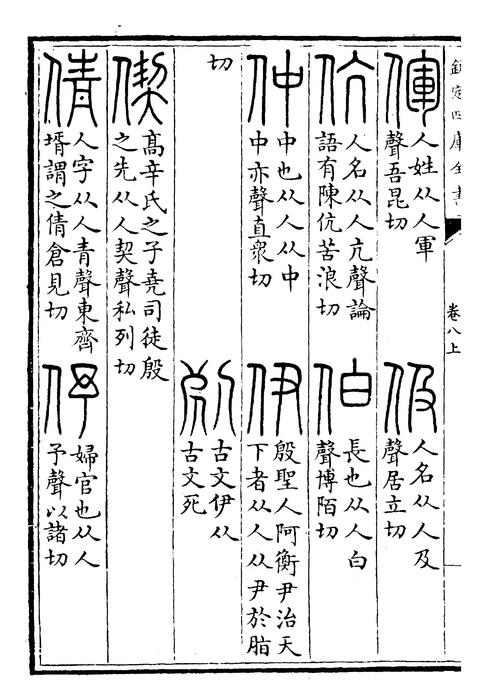 欽定四庫全書
卷八上
㑮
人姓从人軍
聲吾昆切
伋
人名从人及
聲居立切
伉
人名从人亢聲論
語有陳伉苦浪切
伯
長也从人白
聲博陌切
仲
中也从人从中
中亦聲直衆切
伊
殷聖人阿衡尹治天
下者从人从尹於脂
切
古文伊从
古文死
偰
髙辛氏之子堯司徒殷
之先从人契聲私列切
倩
人字从人青聲東齊
壻謂之倩倉見切
伃
婦官也从人
予聲以諸切